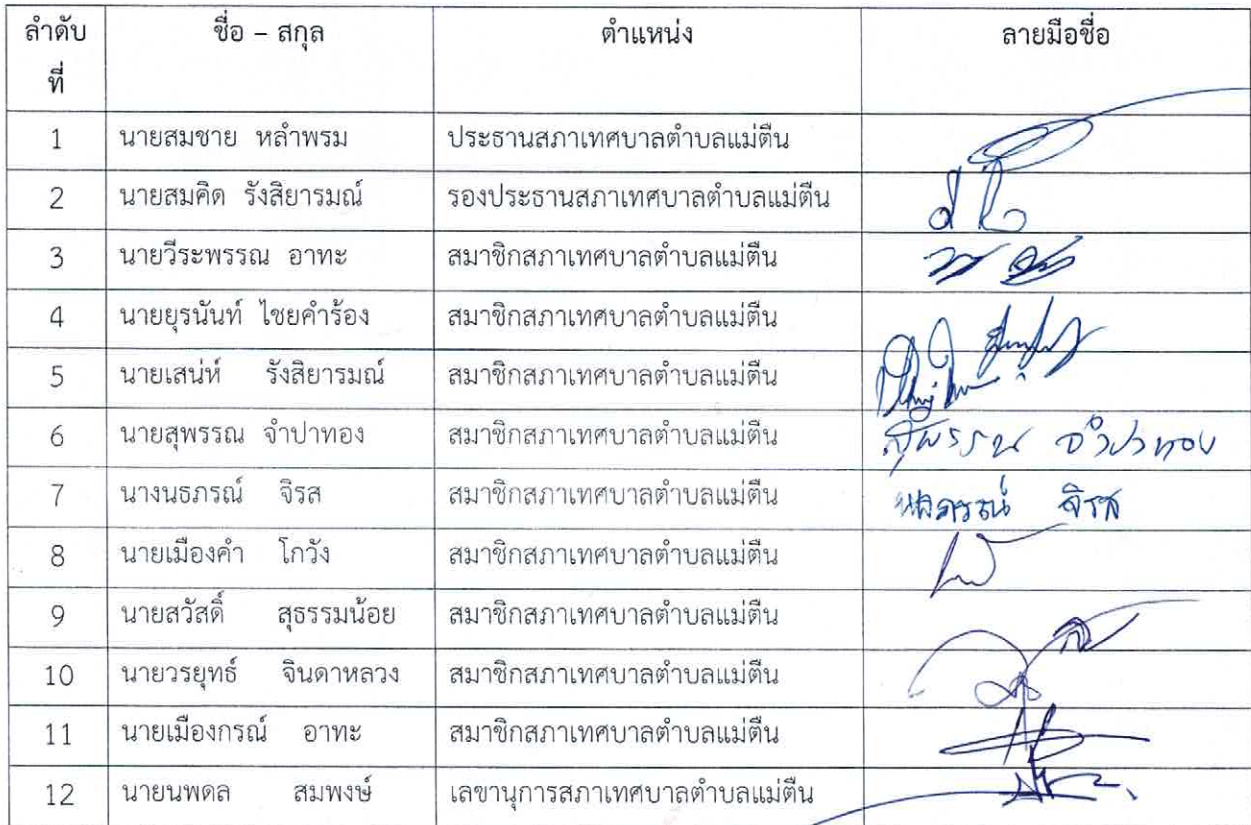 ลำดับ ชื่อ – สกุล ตำแหน่ง ลายมือชื่อ
ที่
1 นายสมชาย หลำพรม ประธานสภาเทศบาลตำบลแม่ตืน
2 นายสมคิด รังสิยารมณ์ รองประธานสภาเทศบาลตำบลแม่ตืน
3 นายวีระพรรณ อาทะ สมาชิกสภาเทศบาลตำบลแม่ตืน
4 นายยุรนันท์ ไชยคำร้อง สมาชิกสภาเทศบาลตำบลแม่ตืน
5 นายเสน่ห์ รังสิยารมณ์ สมาชิกสภาเทศบาลตำบลแม่ตืน
6 นายสุพรรณ จำปาทอง สมาชิกสภาเทศบาลตำบลแม่ตืน สุพรรณ จำปาทอง
7 นางนธภรณ์ จิรส สมาชิกสภาเทศบาลตำบลแม่ตืน นธภรณ์ จิรส
8 นายเมืองคำ โกวัง สมาชิกสภาเทศบาลตำบลแม่ตืน
9 นายสวัสดิ์ สุธรรมน้อย สมาชิกสภาเทศบาลตำบลแม่ตืน
10 นายวรยุทธ์ จินดาหลวง สมาชิกสภาเทศบาลตำบลแม่ตืน
11 นายเมืองกรณ์ อาทะ สมาชิกสภาเทศบาลตำบลแม่ตืน
12 นายนพดล สมพงษ์ เลขานุการสภาเทศบาลตำบลแม่ตืน